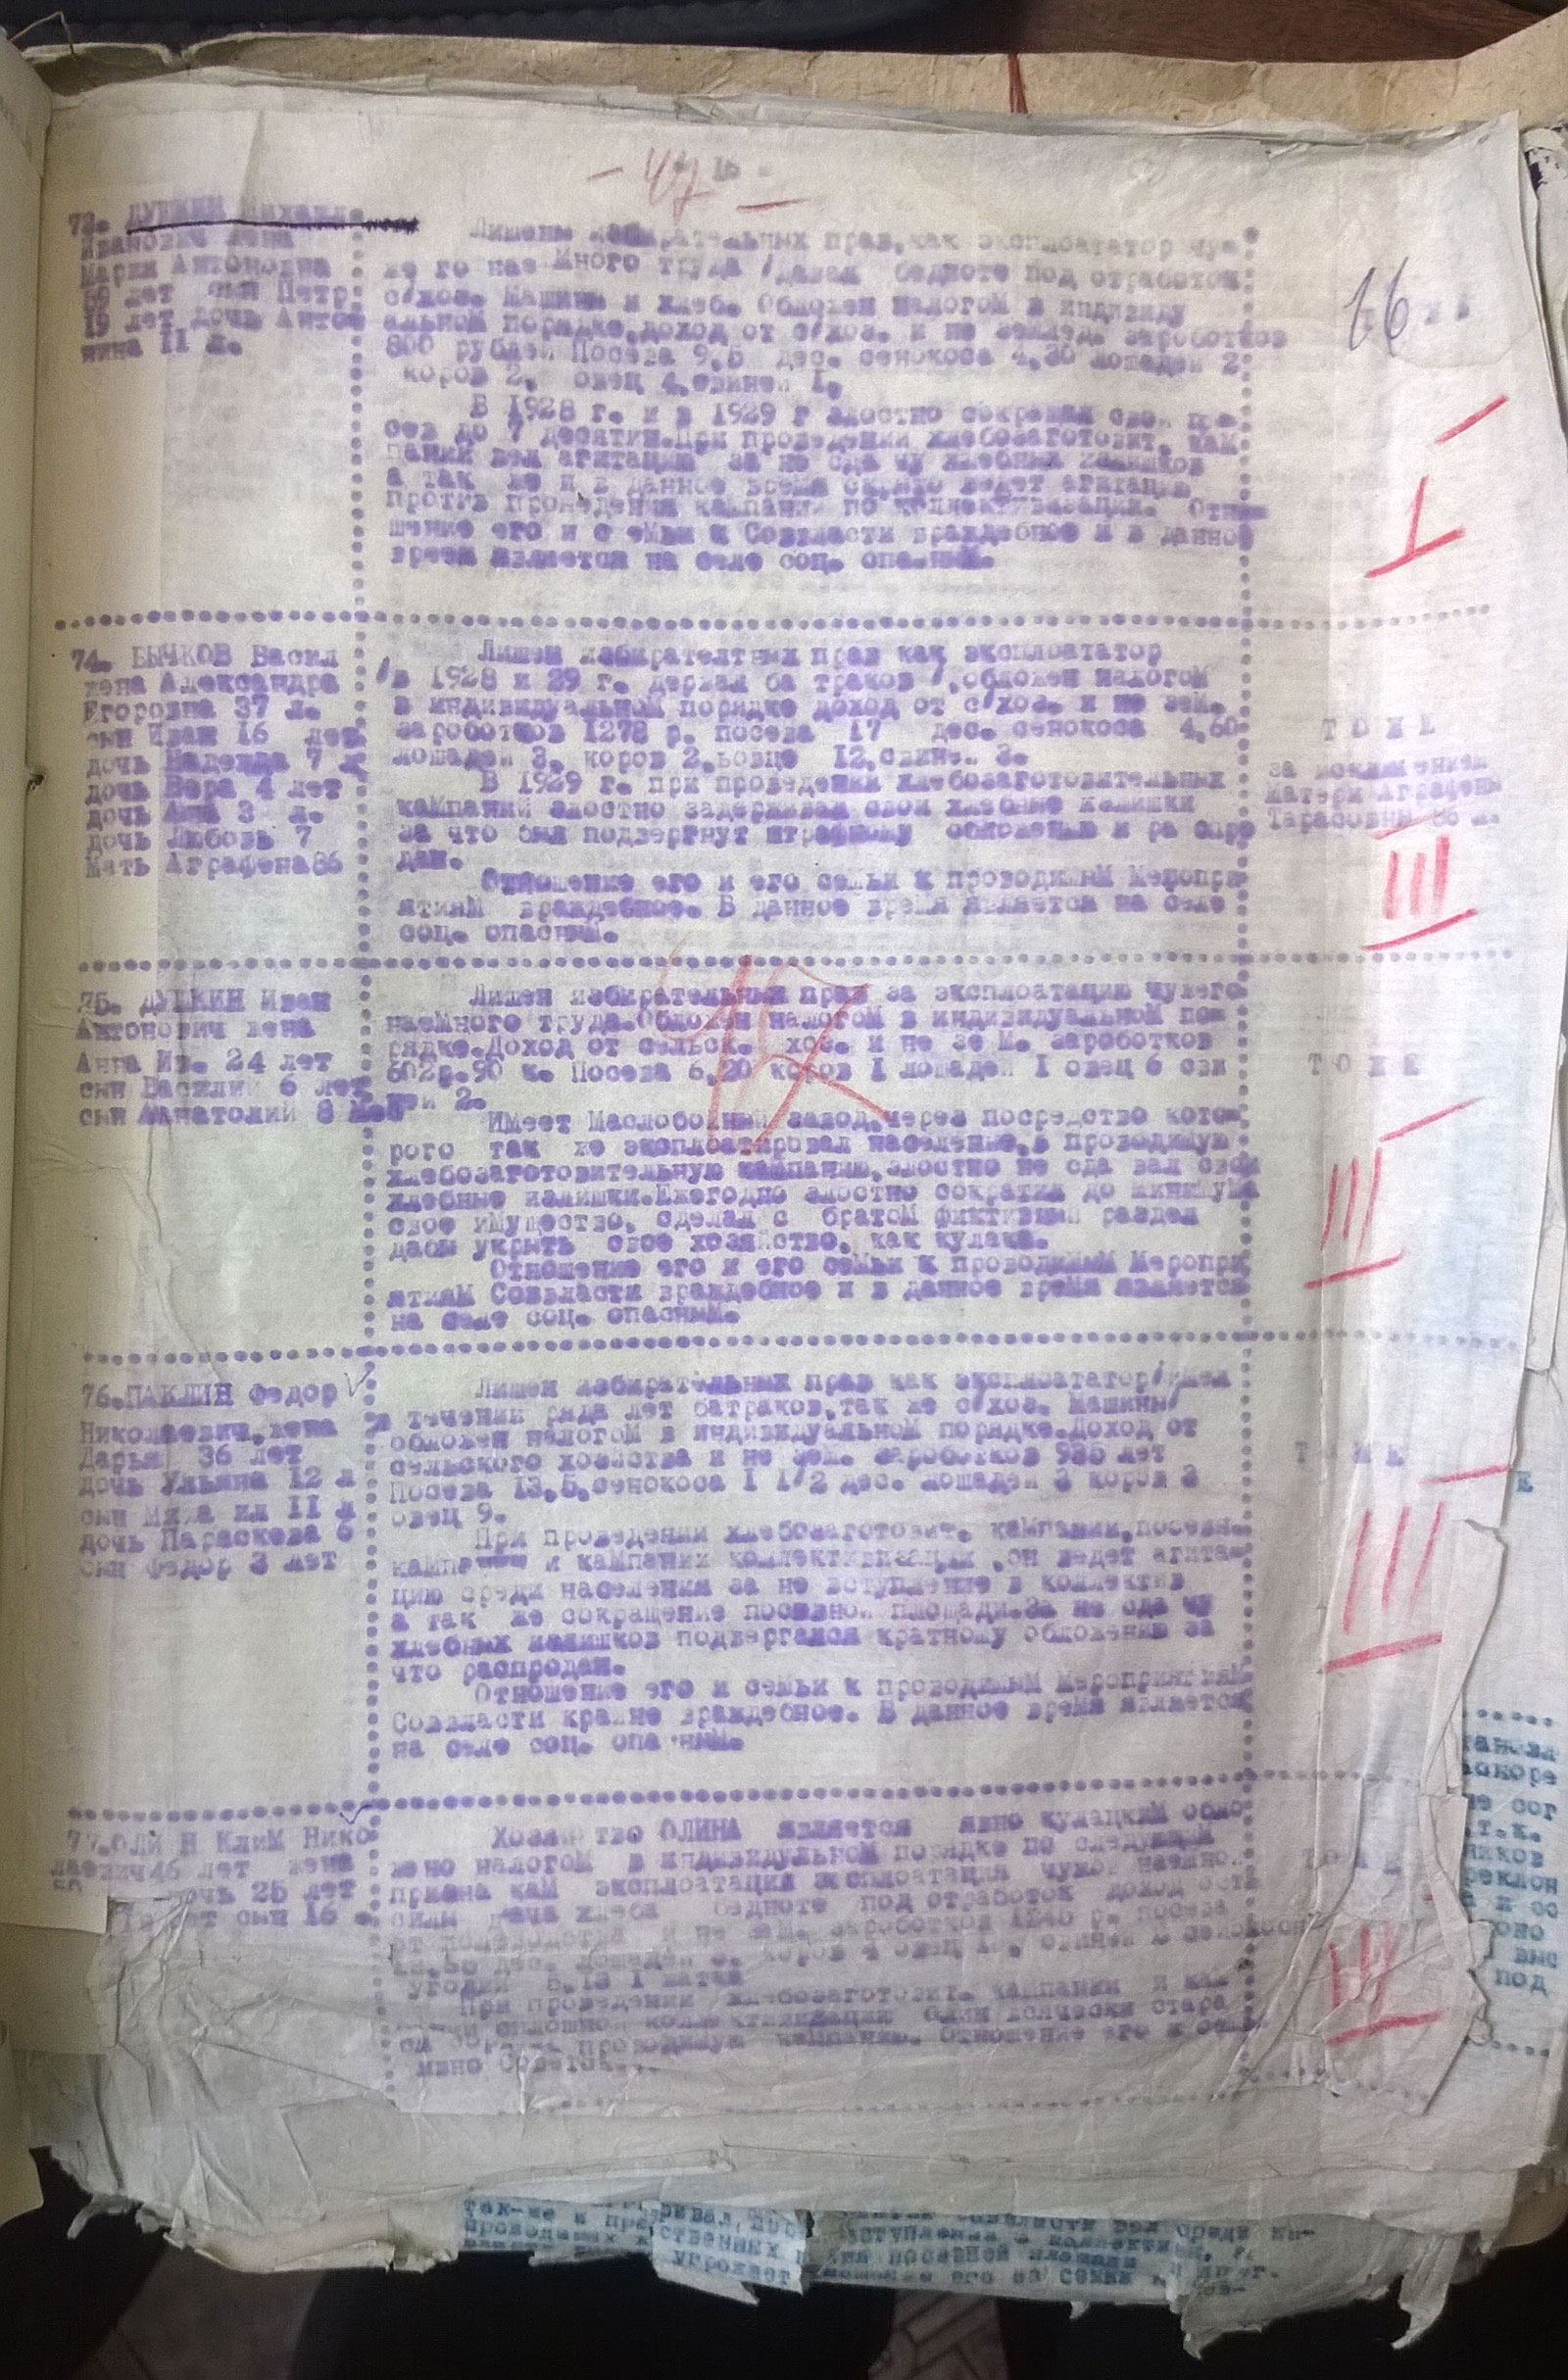 - 47 -
16
73. ДУШКИН Михаил
Ивановис жена
Мария Антоновна
56 лет сын Петр
19 лет дочь Анто
нина 11 л.
Лишены избирательных прав, как эксплоататор чуж
же го нае много труда /давал бедноте под отработки
с/хоз. машины и хлеб. Обложен налогом в индивиду
альном порядке, доход от с/хоз. и не землед. зароботков
800 рублей Посева 9,5 дес. сенокоса 4,30 лошадей 2
коров 2, овец 4, свиней 1,
В 1928 г. и в 1929 г злостно сокращал свои по
сев до 7 десятин. При проведении хлебозаготовит. кам
паний вел агитацию за не сда чу хлебных излишков
а так же и в данное время скрыто ведет агитацию
против проведения кампании по коллективизации. Отно
шение его и с емьи к Соввласти враждебное и в данное
время является на селе соц. опасным.
74. БЫЧКОВ Васил
жена Александра
Егоровна 37 л.
сын Иван 16 лет
дочь Надежда 7 л
дочь Вера 4 лет
дочь Анна 3 л.
дочь Любовь 7
Мать Аграфена 86
Лишен избирателтных прав как эксплоататор
/в 1928 и 29 г. держал ба траков/, обложен налогом
в индивидуальном порядке доход от с/хоз. и не зем.
зароботков 1278 р. посева 17 дес. сенокоса 4,60
лошадей 3, коров 2, ьовце 12, свиней 3.
В 1929 г. при проведении хлебозаготовительных
кампаний злостно задерживал свои хлебные излишки
за что был подвергнут штрафному обложенью и ра спро
дан.
Отношение его и его семьи к проводимым меропри
ятиям враждебное. В данное время является на селе
соц. опасным.
Т О Ж Е
за исключением
матери Аграфены
Тарасовны 86 л.
III
75. ДУШКИН Иван
Антонович жена
Анна Ив. 24 лет
сын Василий 6 лет
сын Анатолий 8 мес
Лишен избирательных прав за эксплоатацию чужего
наемного труда. Обложен налогом в индивидуальном по-
рядке. Доход от сельск. хоз. и не зе м. зароботков
602р.90 к. Посева 6,20 коров 1 лошадей 1 овец 6 сви
ней 2.
Имеет Маслобойный завод, через посредство кото-
рого так же эксплоатировал население, в проводимую
хлебозаготовительную кампанию, злостно не сда вал свои
хлебные излишки. Ежегодно злостно сократил до минимума
свое имущество, сделал с братом фиктивный раздел
дабы укрыть свое хозяйство, как кулака.
Отношение его и его семьи к проводимым меропри
ятиям Соввласти враждебное и в данное время является
на селе соц. опасным.
Т О Ж Е
III
17
76. ПАКЛИН Федор
Николаевич, жена
Дарья 36 лет
дочь Ульяна 12 л
сын Миха ил 11 л
дочь Параскева 6
сын Федор 3 лет
Лишен избирательных прав как эксплоататор/имел
в течении ряда лет батраков, так же с/хоз. машины/
обложен налогом в индивидуальном порядке. Доход от
сельского хозяйства и не зем. зароботков 935 лет
Посева 13,5, сенокоса 1 1/2 дес. лошадей 3 коров 3
овец 9.
При проведении хлебозаготовит. кампании, посевн.
кампании и кампании коллективизации, он ведет агита-
цию среди населения за не вступление в коллектив
а так же сокращение посевной площади. За не сда чу
хлебных излишков подвергался кратному обложению за
что распродан.
Отношение его и семьи к проводимым мероприятиям
Соввласти крайне враждебное. В данное время является
на селе соц. опа ным.
Т О Ж Е
III
77. ОЛИ Н Клим Нико
лаевич 46 лет жена
дочь 25 лет
лет сын 16
Хозяйство ОЛИНА является явно кулацким обло
жено налогом в индивидульном порядке по следующим
призна кам эксплоатация эксплоатация чужой наемно
силы дача хлеба бедноте под отработок доход
от и не зем. зароботков р. посева
дес. лошадей коров 4 овец свиней
угодий
При проведении хлебозаготовит. кампании и кам
сплошной коллективизации Олин всячески стара
проводимую кампанию. Отношение его и семьи
III